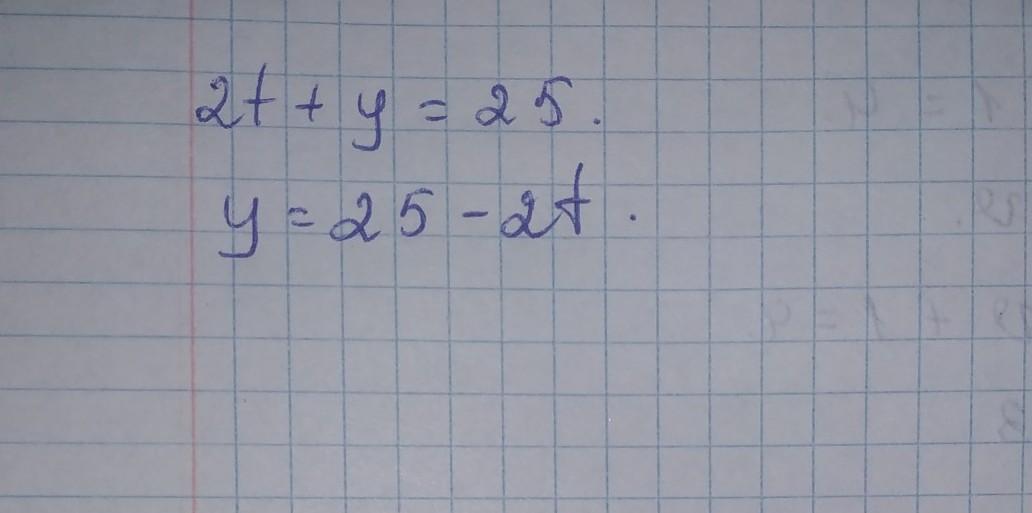 2t + y = 25.
y = 25 - 2t.